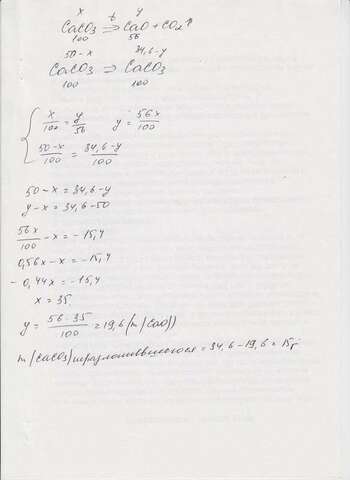 x t y
CaCO3 ⇒ CaO + CO2↑
100 56
50-x 34,6-y
CaCO3 ⇒ CaCO3
100 100
x/100 = y/56 y = 56x/100
50-x/100 = 34,6-y/100
50-x = 34,6-y
y-x = 34,6-50
56x/100 - x = -15,4
0,56x-x = -15,4
-0,44x = -15,4
x = 35
y = 56·35/100 = 19,6 (m(CaO))
m(CaCO3) неразложившегося = 34,6-19,6 = 15г